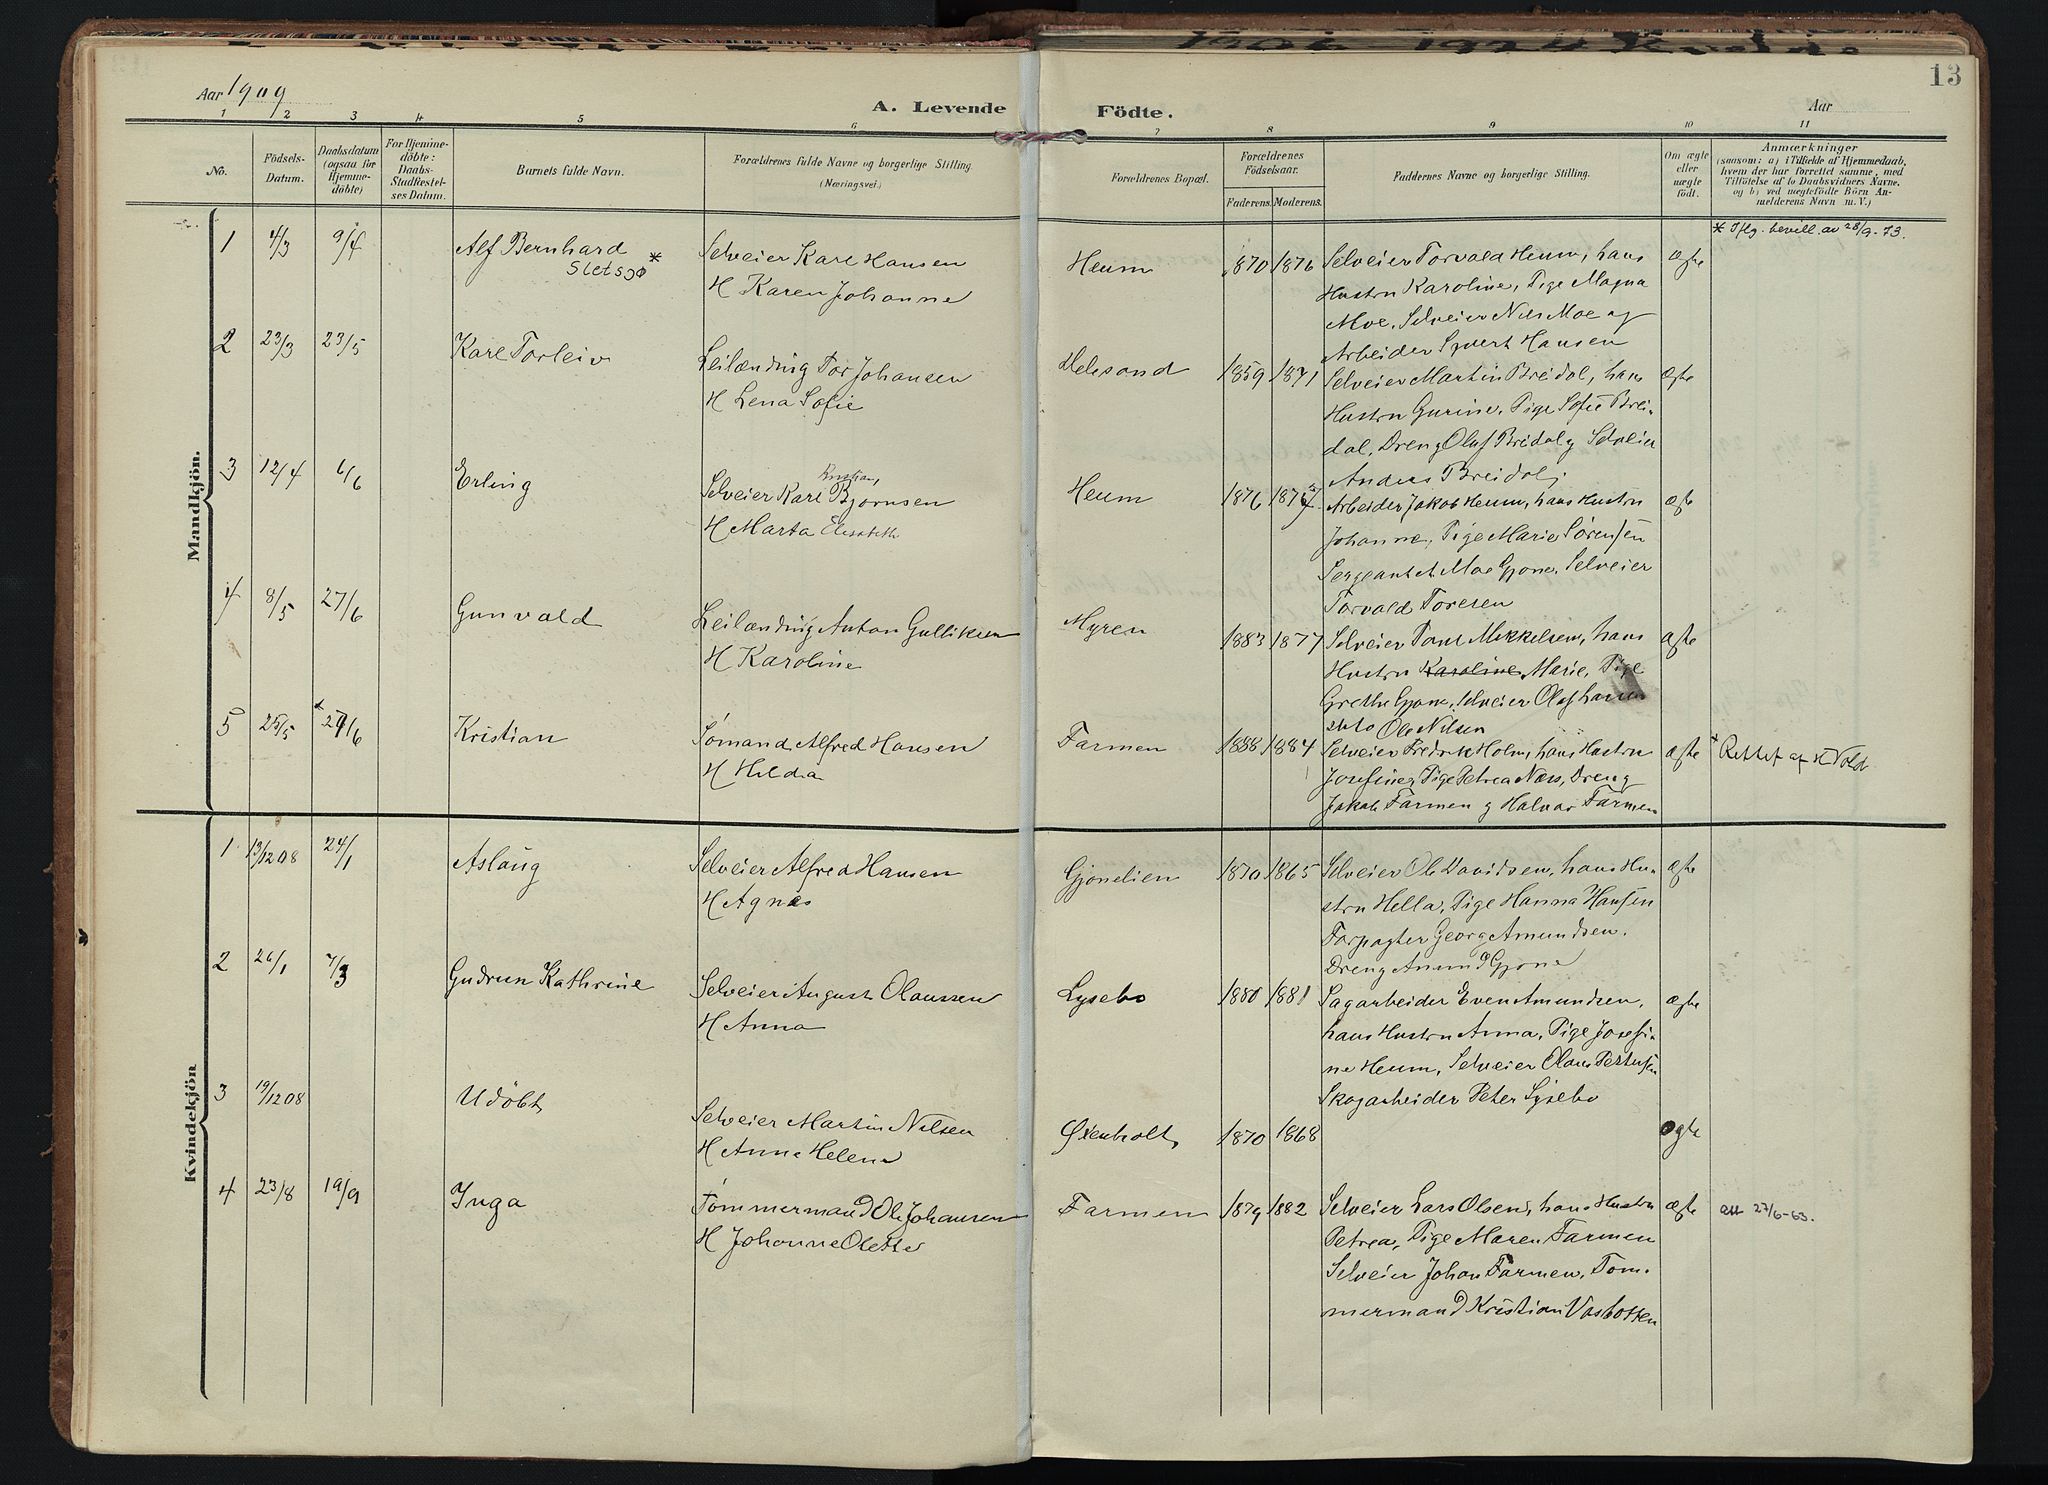 1906 1924 Kvelde
13
Aar 1909
A. Levende
Födte.
Aar
1 2 3 4 5 6 7 8 9 10 11
No.
Födsels-
Datum.
Daabsdatum
(ogsaa for
Hjemme-
döbte)
For Hjemme-
döbte:
Daabs-
Stadfæstel-
ses Datum.
Barnets fulde Navn.
Forældrenes fulde Navne og borgerlige Stilling.
(Næringsvei.)
Forældrenes Bopæl.
Forældrenes
Födselsaar.
Faderens. Moderens.
Faddernes Navne og borgerlige Stilling.
Om ægte
eller
uægte
födt.
Anmærkninger
(saasom: a) i Tilfælde af Hjemmedaab,
hvem der har forrettet samme, med
Tilföielse af to Daabsvidners Navne,
og b) ved uegtefödte Börn An-
melderens Navn m. V.)
Mandkjön.
1 4/3 9/4 Alf Bernhard
Sletsjø *
Selveier Karl Hansen
H Karen Johanne
Heum 1870 1876
Selveier Torvald Heum, hans
Hustru Karoline, Pige Magna
Moe, Selveier Nils Moe og
Arbeider Syvert Hansen
ægte
* Iflg. bevill. av 28/9-73.
2 23/3 23/5 Karl Torleiv
Leilænding Tor Johansen
H Lena Sofie
1859 1871
Selveier Martin Breidal, hans
Hustru Gurine, Pige Sofie Brei-
dal, Dreng Olaf Breidal og Selveier
Anders Breidal
ægte
3 12/4 6/6 Erling
Selveier Karl Kristian, Bjørnsen
H Marta Elisabeth
Heum 1876
Arbeider Jakob Heum, hans Hustru
Johanne, Pige Marie Sørensen
Sergeant Moe Gjone, Selveier
Torvald Toresen
ægte
4 8/5 27/6 Gunvald
Leilænding Anton Gulliksen
H Karoline
Myren 1883 1877
Selveier Mikkelsen, hans
Hustru Karoline Marie, Pige
Grethe Gjone, Selveier Olaf Hansen
Ole Nilsen
ægte
5 25/5 * 27/6 Kristian
Sømand Alfred Hansen
H Hilda
Farmen 1888 1884
Selveier Fredrik Holm, hans Hustru
Josefine, Pige Petrea Næss, Dreng
Jakob Farmen og Halvar Farmen
ægte
* Rettet af H Vold
Kvindekjön
1 13/12 08 24/1 Aslaug
Selveier Alfred Hansen
H Agnes
Gjonelien 1870 1865
Selveier Ole Davidsen, hans Hu-
stru Hella, Pige Hanna Hansen
Forpagter Georg Amundsen,
Dreng Anund Gjone
ægte
2 26/1 7/3 Gudrun Kathrine
Selveier August Olaussen
H Anna
Lysebo 1880 1881
Sagarbeider Even Amundsen,
hans Hustru Anna, Pige Josefi-
ne Heum, Selveier Olaus Pettersen
Skogarbeider Peter Lysebo
ægte
3 19/12 08 Udöbt
Selveier Martin Nilsen
H Anne Helene
Øxenholt 1870 1868
ægte
4 23/8 19/9 Inga
Tömmermand Ole Johansen
H Johanne Olette
Farmen 1879 1882
Selveier Lars Olsen, hans Hustru
Petrea, Pige Maren Farmen
Selveier Johan Farmen, Tom-
mermand Kristian Vasbotten
ægte
att 27/6-63.